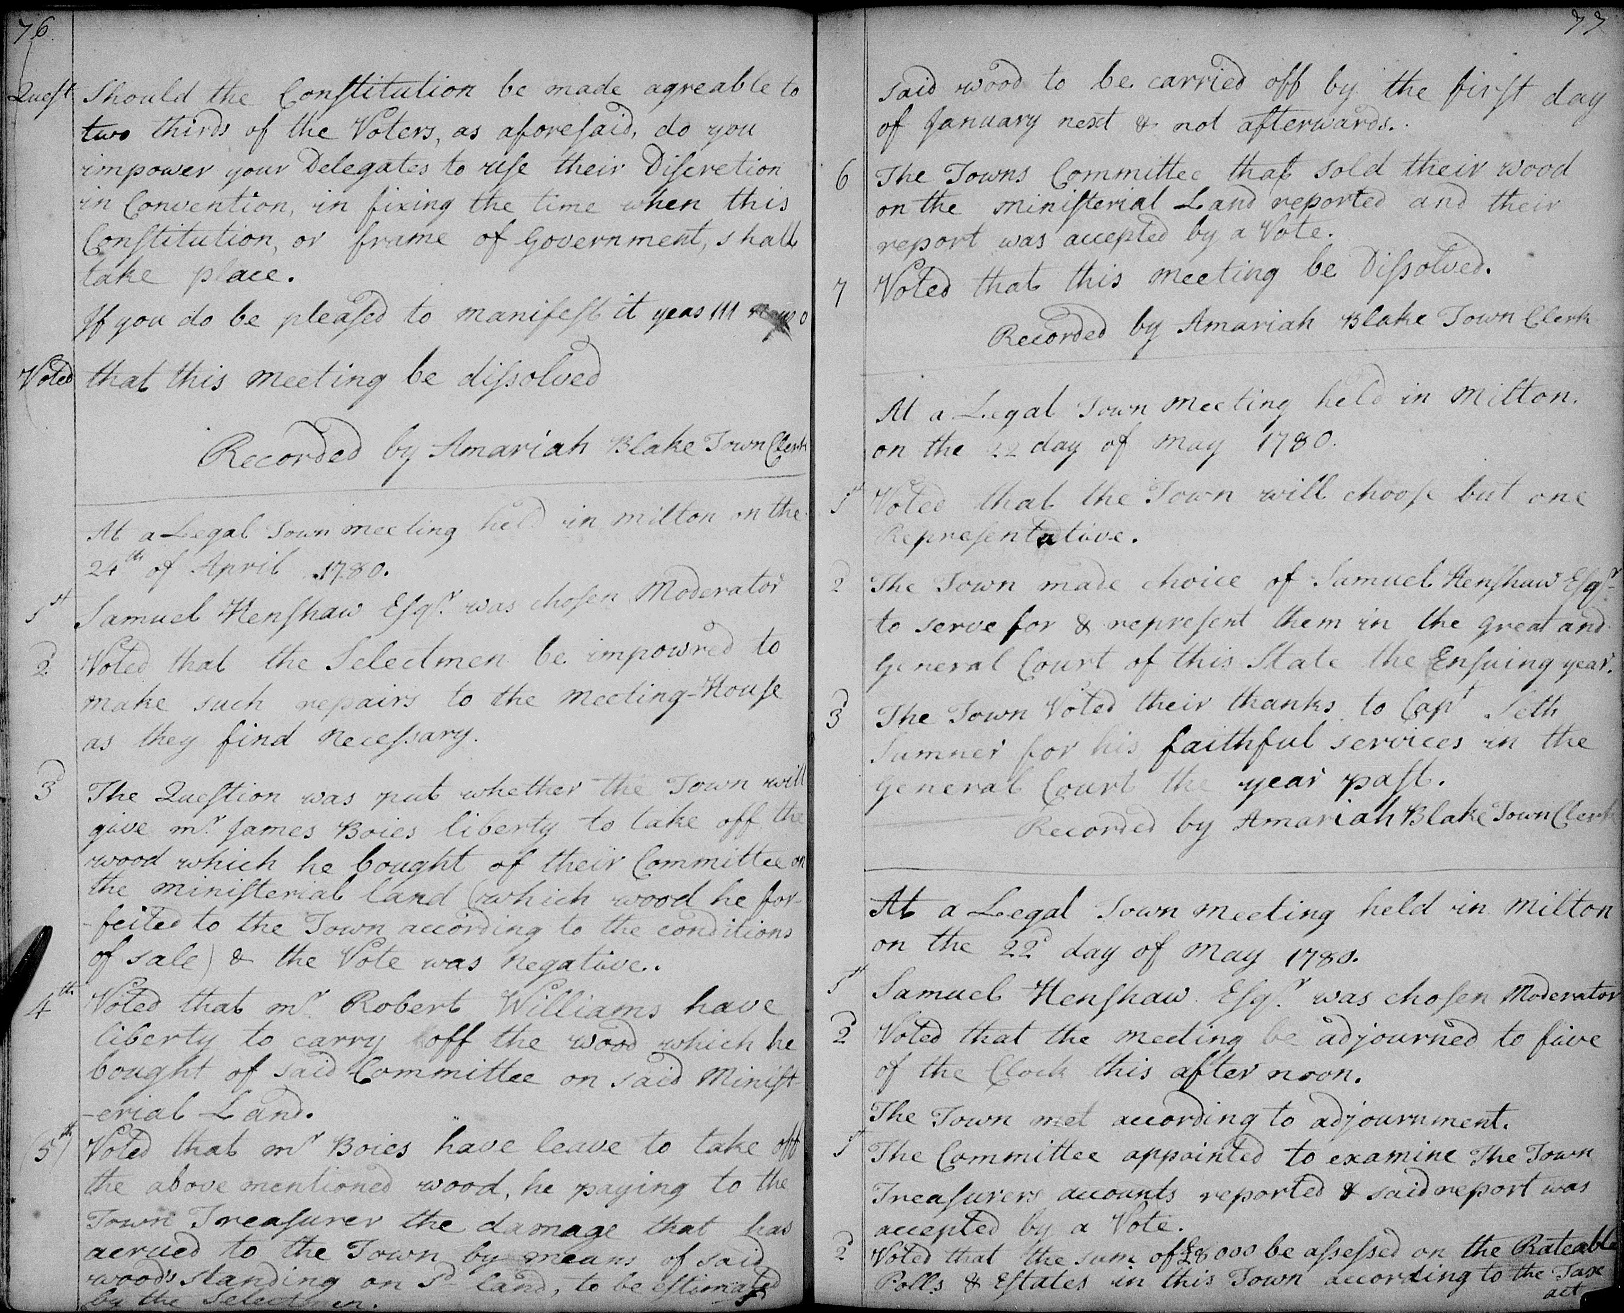 76
Quest Should the Constitution be made agreable to
two thirds of the Voters, as aforesaid, do you
impower your Delegates to use their Discretion
in Convention, in fixing the time when this
Constitution, or frame of Government, shall
take place.
If you do be pleased to manifest it yeas 111 nays 0
Voted that this meeting be dissolved
Recorded by Amariah Blake Town Clerk
At a Legal Town meeting held in milton on the
24th of April 1780.
1st Samuel Henshaw Esqr. was chosen Moderator
2 Voted that the Selectmen be impowred to
make such repairs to the meeting-House
as they find necessary.
3 The Question was put whether the Town will
give mr. James Boies liberty to take off the
wood which he bought of their Committee on
the ministerial land (which wood he for-
-feited to the Town according to the conditions
of sale) & the Vote was negative.
4th Voted that mr. Robert Williams have
liberty to carry off the wood which he
bought of said Committee on said Minist-
-erial Land.
(5th) Voted that mr Boies have leave to take off
the above mentioned wood, he paying to the
Town Treasurer the damage that has
acrued to the Town by means of said
wood's standing on sd land, to be estimated
by the Selectmen.
77
said wood to be carried off by the first day
of January next & not afterwards.
6 The Towns Committee that sold their wood
on the ministerial Land reported and their
report was accepted by a Vote.
7 Voted that this meeting be Dissolved.
Recorded by Amariah Blake Town Clerk
At a Legal Town meeting held in Milton.
on the 22 day of may 1780.
1st Voted that the Town will choose but one
Representative.
2 The Town made choice of Samuel Henshaw Esqr.
to serve for & represent them in the great and
General Court of this State the Ensuing year.
3 The Town Voted their thanks to Capt Seth
Sumner for his faithful services in the
General Court the year past.
Recorded by Amariah Blake Town Clerk
At a Legal Town meeting held in Milton
on the 22d day of may 1780.
1st Samuel Henshaw Esqr. was chosen Moderator
2 Voted that the meeting be adjourned to five
of the Clock this after noon.
The Town met according to adjournment.
1st The Committee appointed to examine The Town
Treasurers accounts reported & said report was
accepted by a Vote.
2 Voted that the sum of £8000 be assessed on the Rateable
Polls & Estates in this Town according to the Tax
act